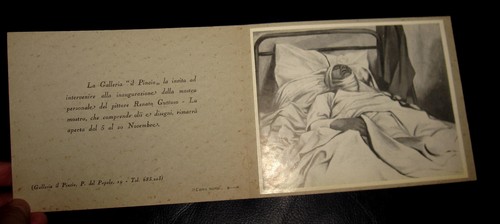 La Galleria "il Pincio„ la invita ad
intervenire alla inaugurazione della mostra
personale del pittore Renato Guttuso - La
mostra, che comprende olii e disegni, rimarrà
aperta dal 5 al 20 Novembre.
(Galleria il Pincio, P. del Popolo, 19 - Tel.